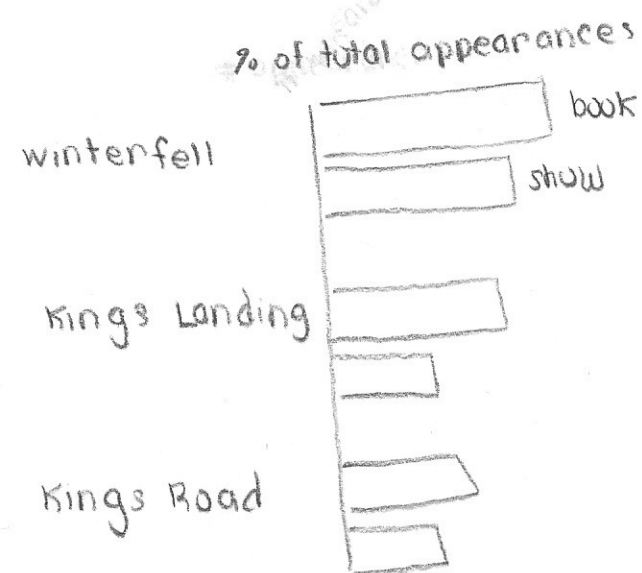 % of total appearances
book
winterfell
show
Kings Landing
Kings Road